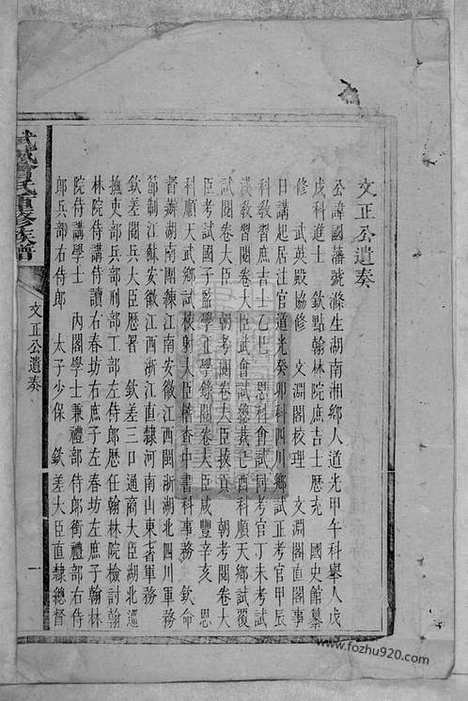 文正公遺奏
公諱國藩號滌生湖南湘鄉人道光甲午科舉人戊
戌科進士 欽點翰林院庶吉士歷充 國史館纂
修 武英殿協修 文淵閣校理 文淵閣直閣事
日講起居注官道光癸卯科四川鄉試正考官甲辰
科教習庶吉士乙巳 恩科會試同考官丁未考試
漢教習閱卷大臣武會試總裁己酉科順天鄉試覆
試閱卷大臣 朝考閱卷大臣拔貢 朝考閱卷大
臣考試國子監學正學錄閱卷大臣咸豐辛亥 恩
科順天武鄉試校射大臣稽查中書科事務 欽命
督辦湖南團練江南安徽江西閩浙湖北四川軍務
節制江蘇安徽江西浙江直隸河南山東各省軍務
欽差閱兵大臣歷署 欽差三口通商大臣湖北巡
撫吏部兵部刑部工部左侍郎歷任翰林院檢討翰
林院侍講侍讀右春坊右庶子左春坊左庶子翰林
院侍講學士 內閣學士兼禮部侍郎銜禮部右侍
郎兵部右侍郎 太子少保 欽差大臣直隸總督
武城曾氏重修族譜
文正公遺奏
一
www.fozhu920.com